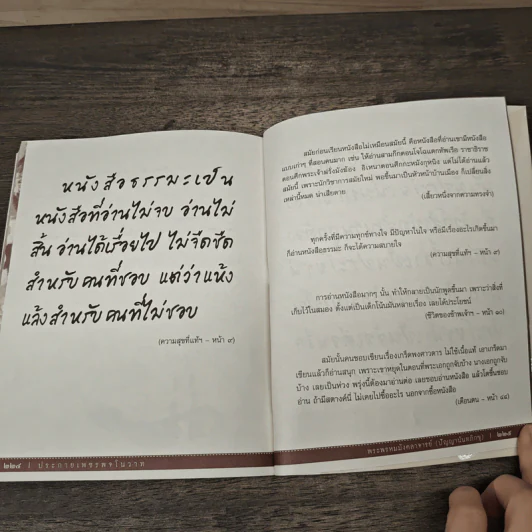 หนังสือธรรมะเป็น
หนังสือที่อ่านไม่จบ อ่านไม่
สิ้น อ่านได้เรื่อยไป ไม่จืดชืด
สำหรับคนที่ชอบ แต่ว่าแห้ง
แล้งสำหรับคนที่ไม่ชอบ
(ความสุขที่แท้ฯ - หน้า ๙)
๒๒๔ | ประกายเพชรพจโนวาท
สมัยก่อนเรียนหนังสือไม่เหมือนสมัยนี้ คือหนังสือที่อ่านเขามีหนังสือ
แบบเก่าๆ ที่สอนคนมาก เช่น ให้อ่านสามก๊กตอนโจโฉแตกทัพเรือ ราชาธิราช
ตอนศึกพระเจ้าฝรั่งมังฆ้อง อิเหนาตอนศึกกะหมังกูหนิง แต่ไม่ได้อ่านแล้ว
สมัยนี้ เพราะนักวิชาการสมัยใหม่ พอขึ้นมาเป็นหัวหน้าบ้านเมือง ก็เปลี่ยนสิ่ง
เหล่านี้หมด น่าเสียดาย
(เสี้ยวหนึ่งจากความทรงจำ)
ทุกครั้งที่มีความทุกข์ทางใจ มีปัญหาในใจ หรือมีเรื่องอะไรเกิดขึ้นมา
ก็อ่านหนังสือธรรมะ ก็จะได้ความสบายใจ
(ความสุขที่แท้ฯ - หน้า ๙)
การอ่านหนังสือมากๆ นั้น ทำให้กลายเป็นนักพูดขึ้นมา เพราะว่าสิ่งที่
เก็บไว้ในสมอง ตั้งแต่เป็นเด็กโน้นมันหลายเรื่อง เลยได้ประโยชน์
(ชีวิตของข้าพเจ้าฯ - หน้า ๑๐)
สมัยนั้นคนชอบเขียนเรื่องเกร็ดพงศาวดาร ไม่ใช้เนื้อแท้ เอาเกร็ดมา
เขียนแล้วก็อ่านสนุก เพราะเขาหยุดในตอนที่พระเอกถูกจับบ้าง นางเอกถูกจับ
บ้าง เลยเป็นห่วง พรุ่งนี้ต้องมาอ่านต่อ เลยชอบอ่านหนังสือ แล้วใครชื่นชอบ
อ่าน ถ้ามีสตางค์นี่ ไม่เคยไปซื้ออะไร นอกจากซื้อหนังสือ
(เตือนตน - หน้า ๔๔)
พระพรหมมังคลาจารย์ (ปัญญานันทภิกขุ) | ๒๒๕